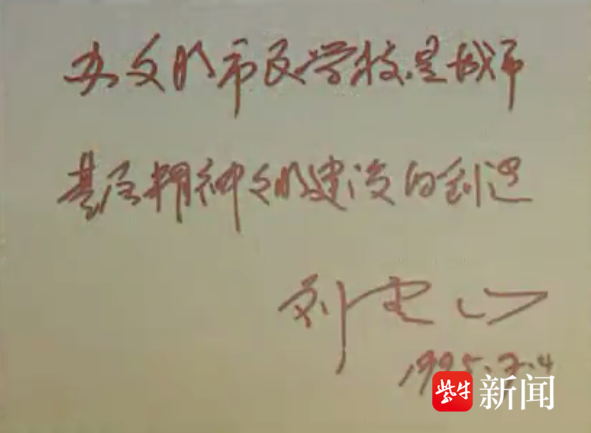 办文明市民学校,是城市
基层精神文明建设的创造
刘云山
1995.7.4
紫牛新闻